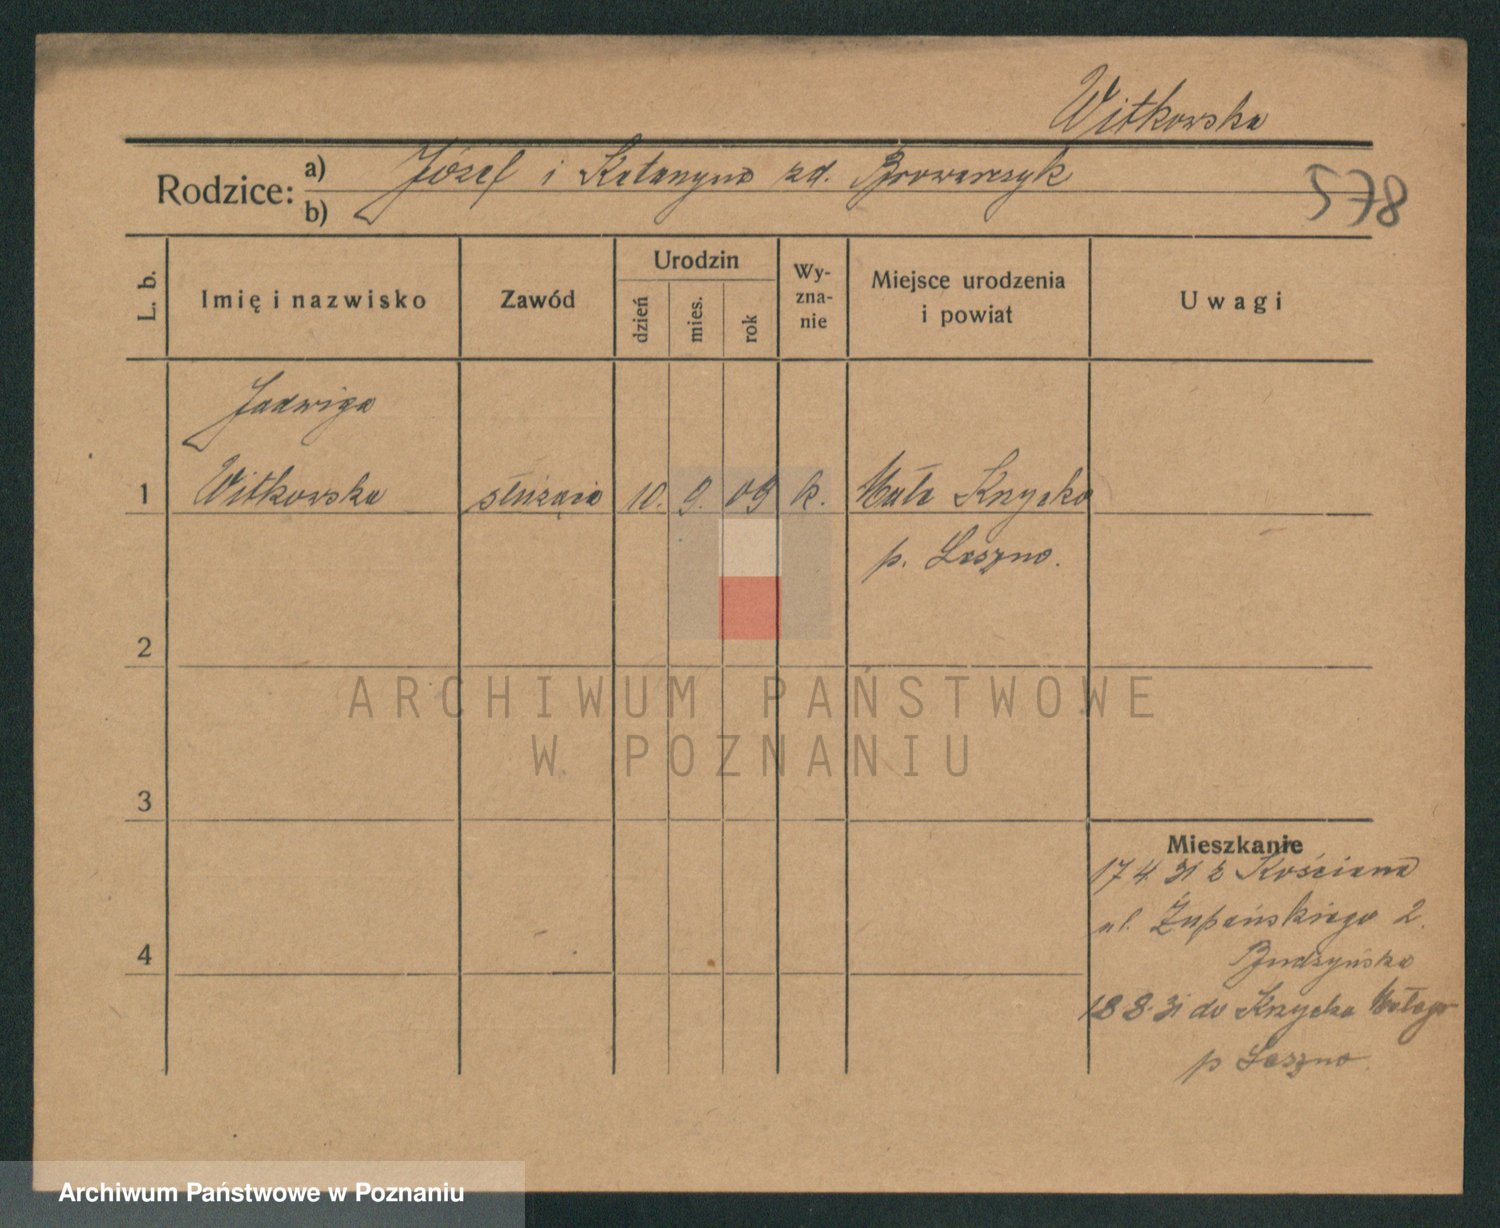 Witkowska
Rodzice: a) Józef i Katarzyna zd. Browarczyk
b)
578
L. b.
Imię i nazwisko
Zawód
Urodzin
dzień
mies.
rok
Wy-
zna-
nie
Miejsce urodzenia
i powiat
Uwagi
Jadwiga
1 Witkowska służąca 10. 9. 09 k. Małe Krzycko
p. Leszno.
2
ARCHIWUM PAŃSTWOWE
W POZNANIU
3
Mieszkanie
17 4 31 z Kościana
ul. Żupańskiego 2.
Budzyńska
4
18 8 31 do Krzycka Małego
p Leszno
Archiwum Państwowe w Poznaniu